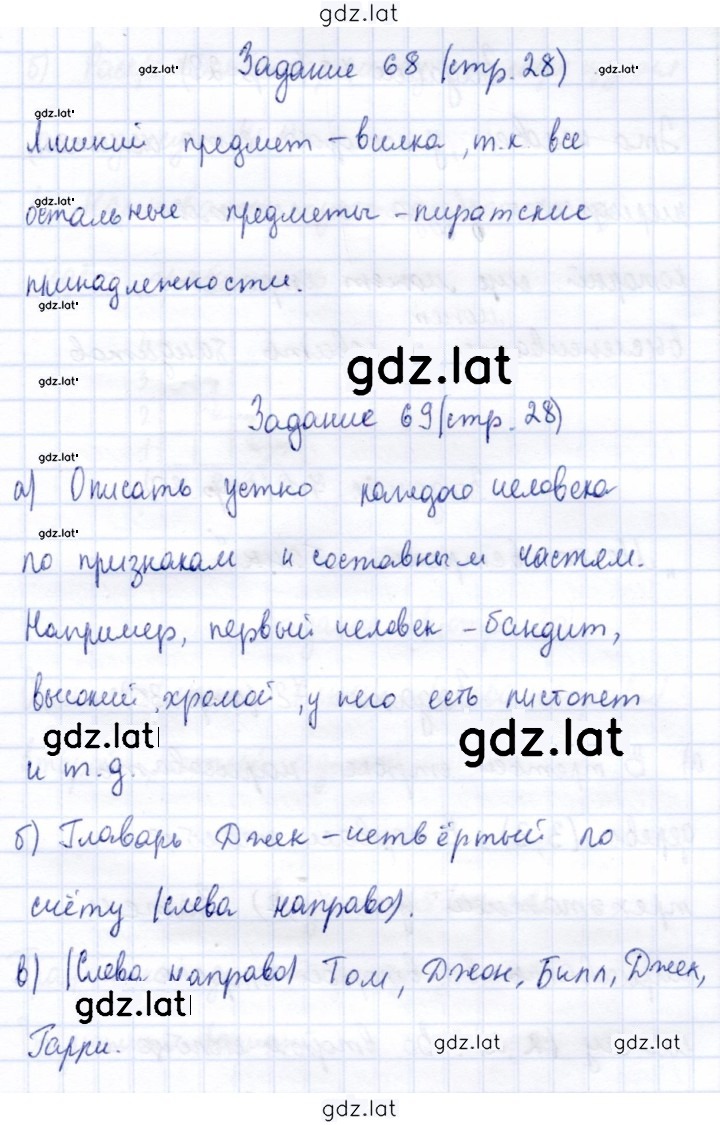 gdz.lat
Задание 68 (стр. 28)
gdz.lat
gdz.lat
gdz.lat
Лишний предмет - вилка, т.к все
gdz.lat
остальные предметы - пиратские
принадлежности.
gdz.lat
gdz.lat
gdz.lat
Задание 69 (стр. 28)
gdz.lat
а) Описать устно каждого человека
gdz.lat
по признакам и составным частям.
Например, первый человек - бандит,
высокий, хромой, у него есть пистолет
gdz.lat
gdz.lat
и т.д.
б) Главарь Джек - четвёртый по
счёту (слева направо).
в) (Слева направо) Том, Джон, Билл, Джек,
gdz.lat
Гарри.
gdz.lat
gdz.lat
gdz.lat